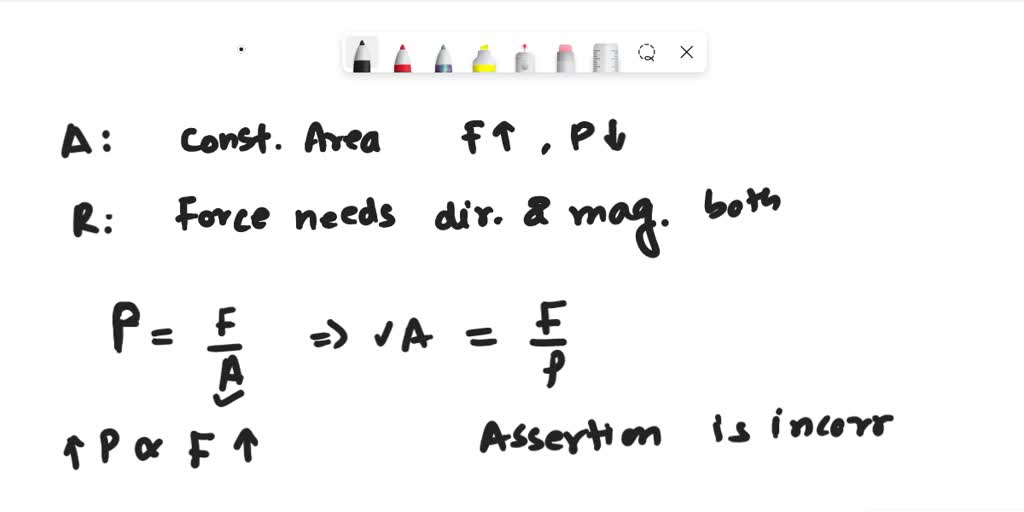 A: Const. Area F↑, P↓
R: Force needs dir. & mag. both
P = F/A => ✓A = F/P
↑ P ∝ F ↑ Assertion is incorr